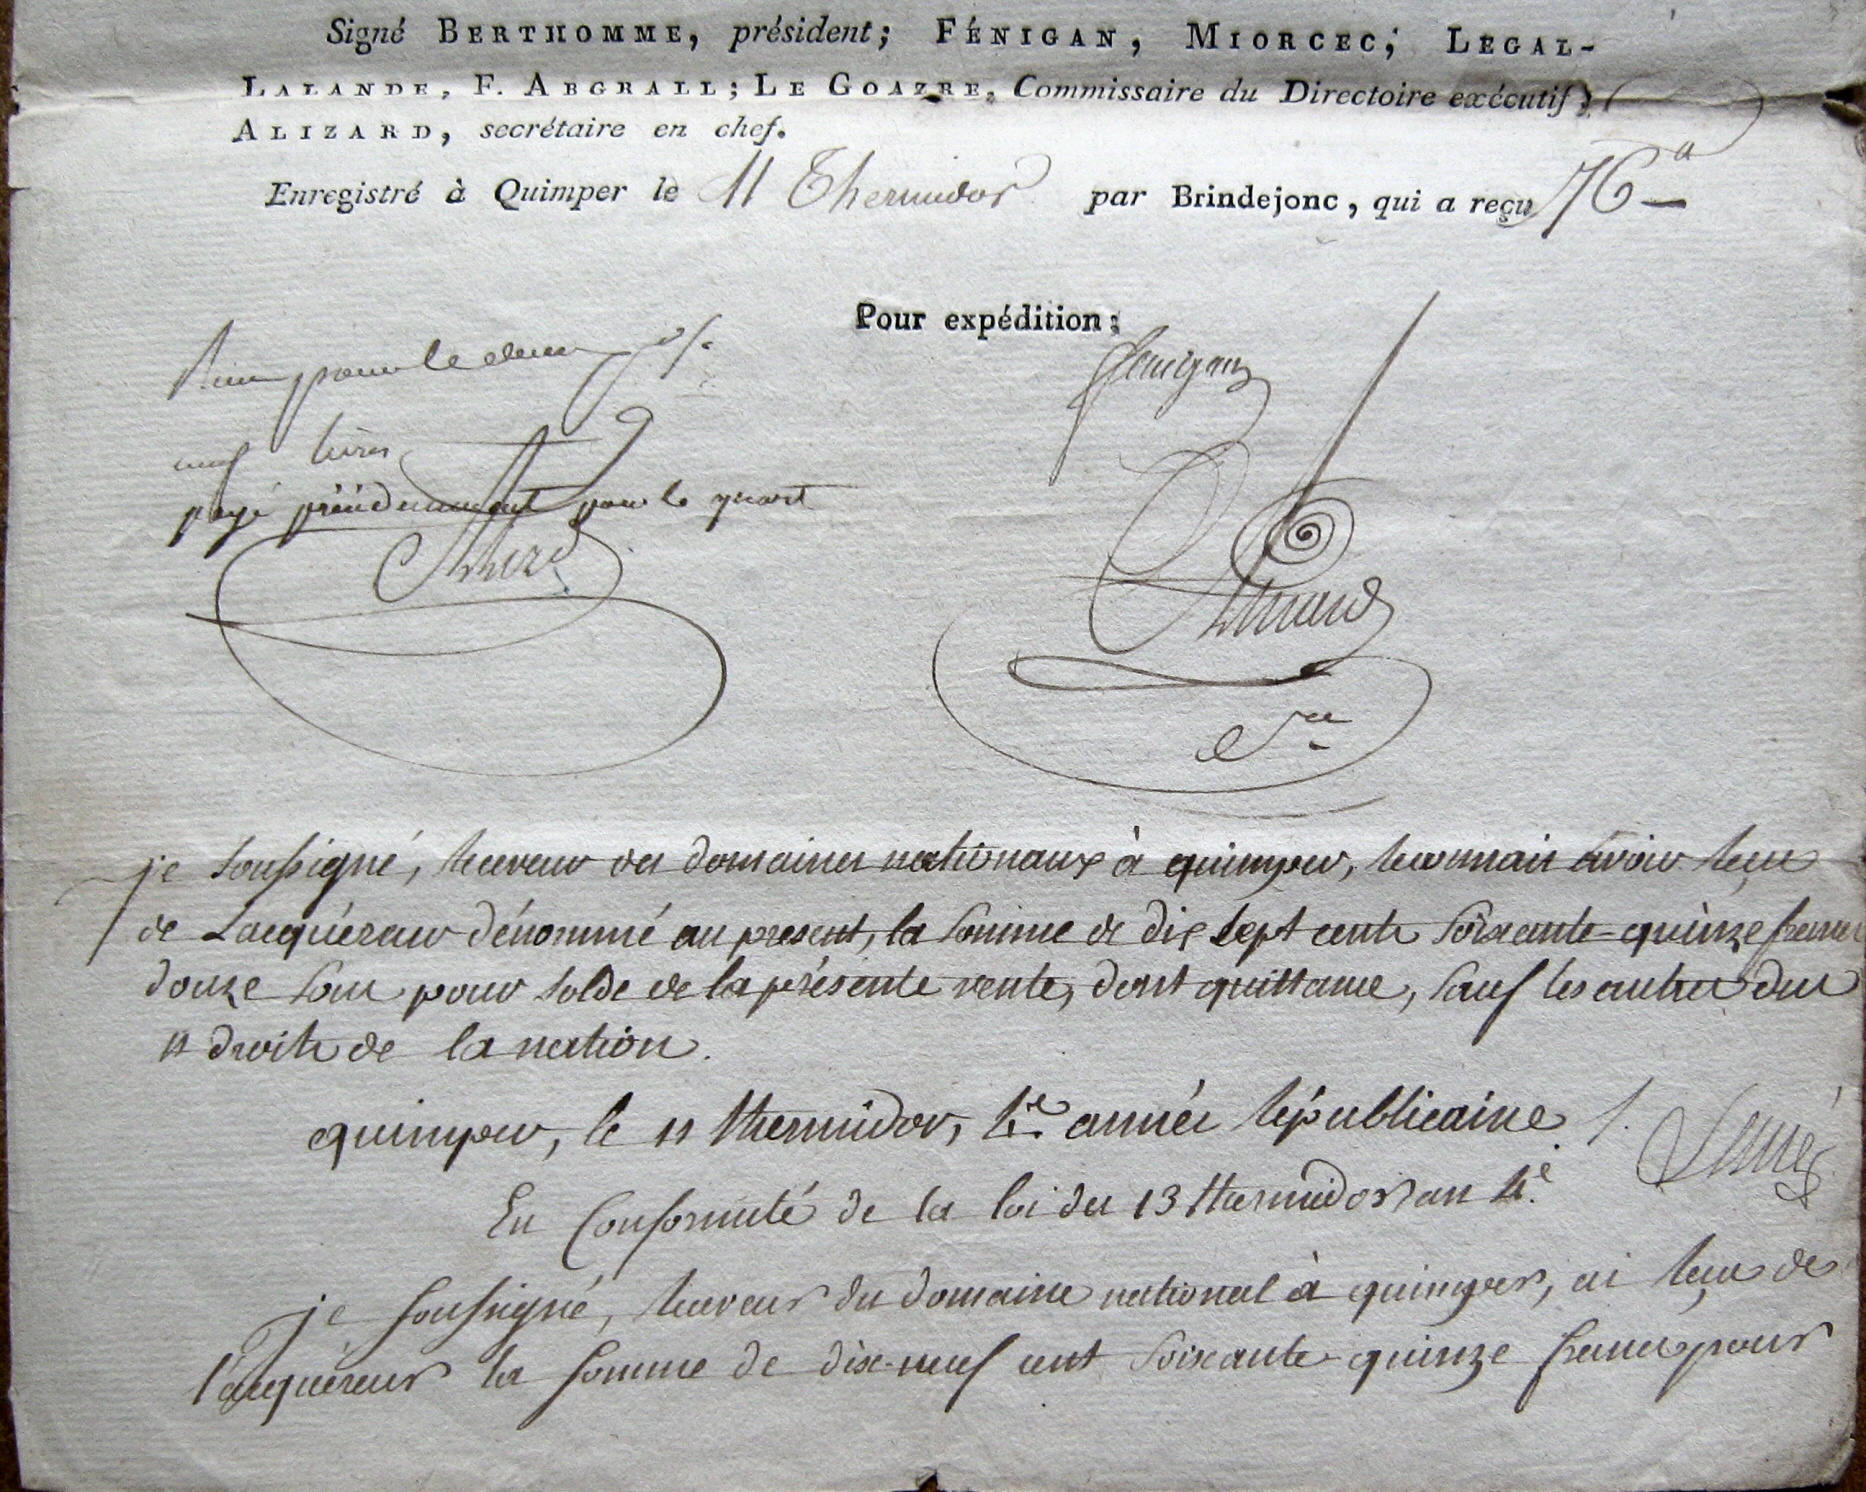 Signé BERTHOMME, président; FÉNIGAN, MIORCEC, LEGAL-
LALANDE, F. ABGRALL; LE GOAZRE, Commissaire du Directoire exécutif;
ALIZARD, secrétaire en chef.
Enregistré à Quimper le 11 Thermidor par Brindejonc, qui a reçu 76
Pour expédition:
pour le
fenigan
neuf livres
payé précédemment pour le quart
je soussigné, receveur des domaines nationaux à quimper, reconnais avoir reçu
de Lacquéreur dénommé au présent, la somme de dix sept cents soixante-quinze francs
douze sous pour solde de la présente vente, dont quittance, sauf les autres dus
11 droits de la nation.
quimper, le 11 thermidor, 4.e année républicaine.
En Conformité de la loi du 13 thermidor an 4.e
je soussigné, receveur du domaine national à quimper, ai reçu de
l'acquéreur la somme de dix-neuf cent soixante-quinze francs pour